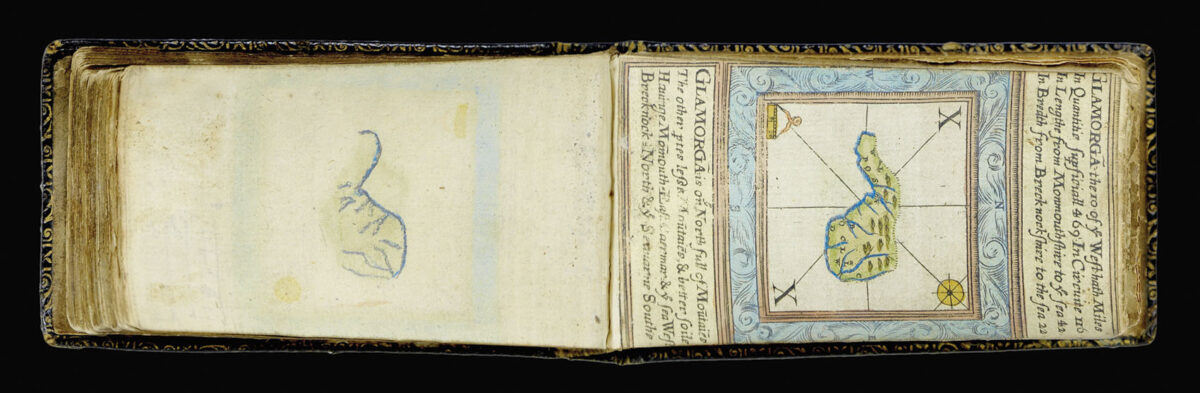 GLAMORGĀ the 10 of yͤ West hath Miles
In Quantitie supficiall 469 In Circuite
In Lengthe from Monmouthshire to yͤ sea 42
In Bredth from Brecknockshire to the sea 22
N
X
X
W
E
S
GLAMORGĀ is on North full of Moūtaies
The other ptes lesse Moūtaies, & better soile
Hauing Momouth East Caermar & yͤ sea West
Brecknock North & yͤ Southe